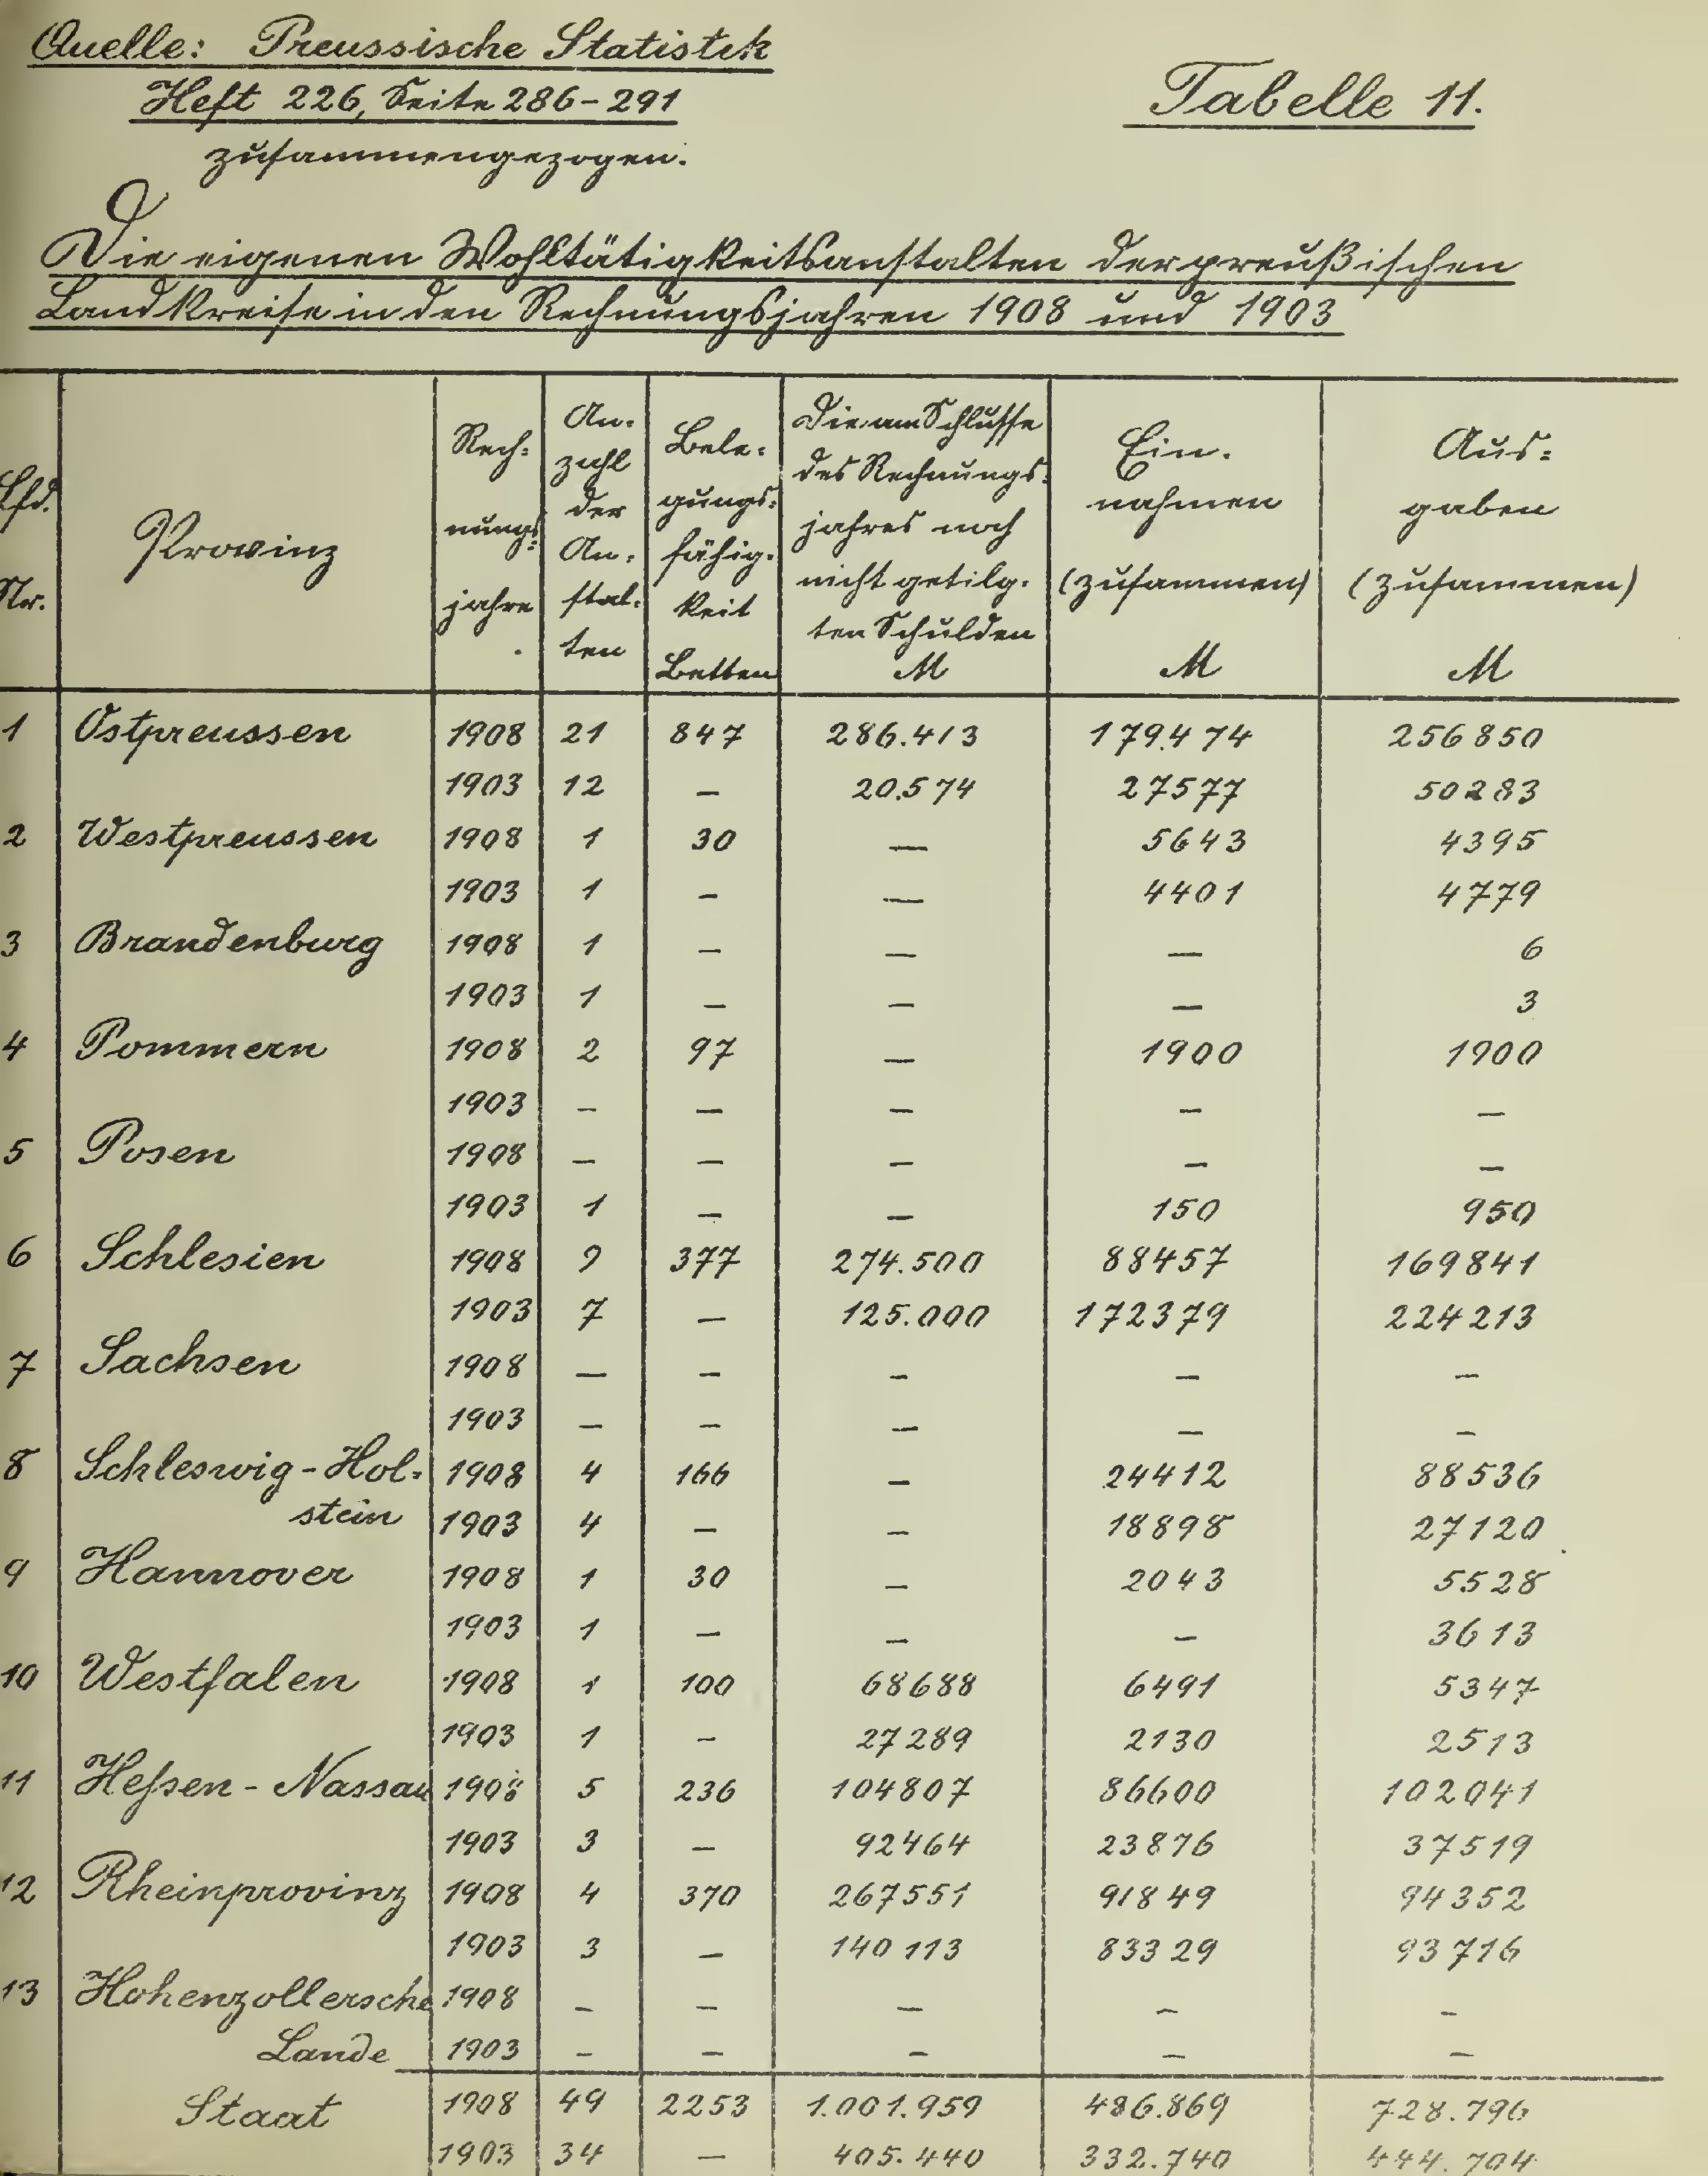 Quelle: Preussische Statistik
Heft 226, Seite 286-291
zusammengezogen.
Tabelle 11.
Die eigenen Wohltätigkeitsanstalten der preußischen
Landkreise in den Rechnungsjahren 1908 und 1903
Lfd. Nr. Provinz Rech= nungs= jahre An= zahl der An= stal= ten Bele= gungs= fähig= keit Betten Die am Schlusse des Rechnungs= jahres noch nicht getilg= ten Schulden M Ein= nahmen (zusammen) M Aus= gaben (zusammen) M
1 Ostpreussen 1908 21 847 286.413 179.474 256850
1903 12 — 20.574 27577 50283
2 Westpreussen 1908 1 30 — 5643 4395
1903 1 — — 4401 4779
3 Brandenburg 1908 1 — — — 6
1903 1 — — — 3
4 Pommern 1908 2 97 — 1900 1900
1903 — — — — —
5 Posen 1908 — — — — —
1903 1 — — 150 950
6 Schlesien 1908 9 377 274.500 88457 169841
1903 7 — 125.000 172379 224213
7 Sachsen 1908 — — — — —
1903 — — — — —
8 Schleswig-Hol= 1908 4 166 — 24412 88536
stein 1903 4 — — 18898 27120
9 Hannover 1908 1 30 — 2043 5528
1903 1 — — — 3613
10 Westfalen 1908 1 100 68688 6491 5347
1903 1 — 27289 2130 2513
11 Heßsen-Nassau 1908 5 236 104807 86600 102041
1903 3 — 92464 23876 37519
12 Rheinprovinz 1908 4 370 267551 91849 94352
1903 3 — 140113 83329 93716
13 Hohenzollersche 1908 — — — — —
Lande 1903 — — — — —
Staat 1908 49 2253 1.001.959 486.869 728.796
1903 34 — 405.440 332.740 444.704